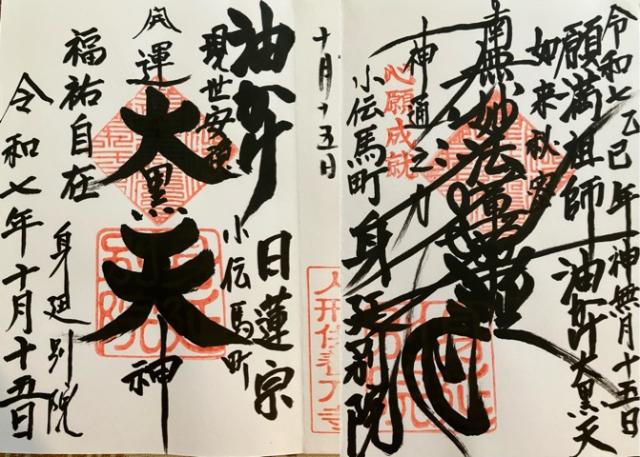 令和七乙巳年神無月十五日
願満祖師 油かけ大黒天
如来秘密
南無妙法蓮華経
神通之力
心願成就
小伝馬町
身延別院
十月十五日
油かけ
日蓮宗
現世安穏
小伝馬町
開運
大黒天神
福祐自在
身延別院
令和七年十月十五日